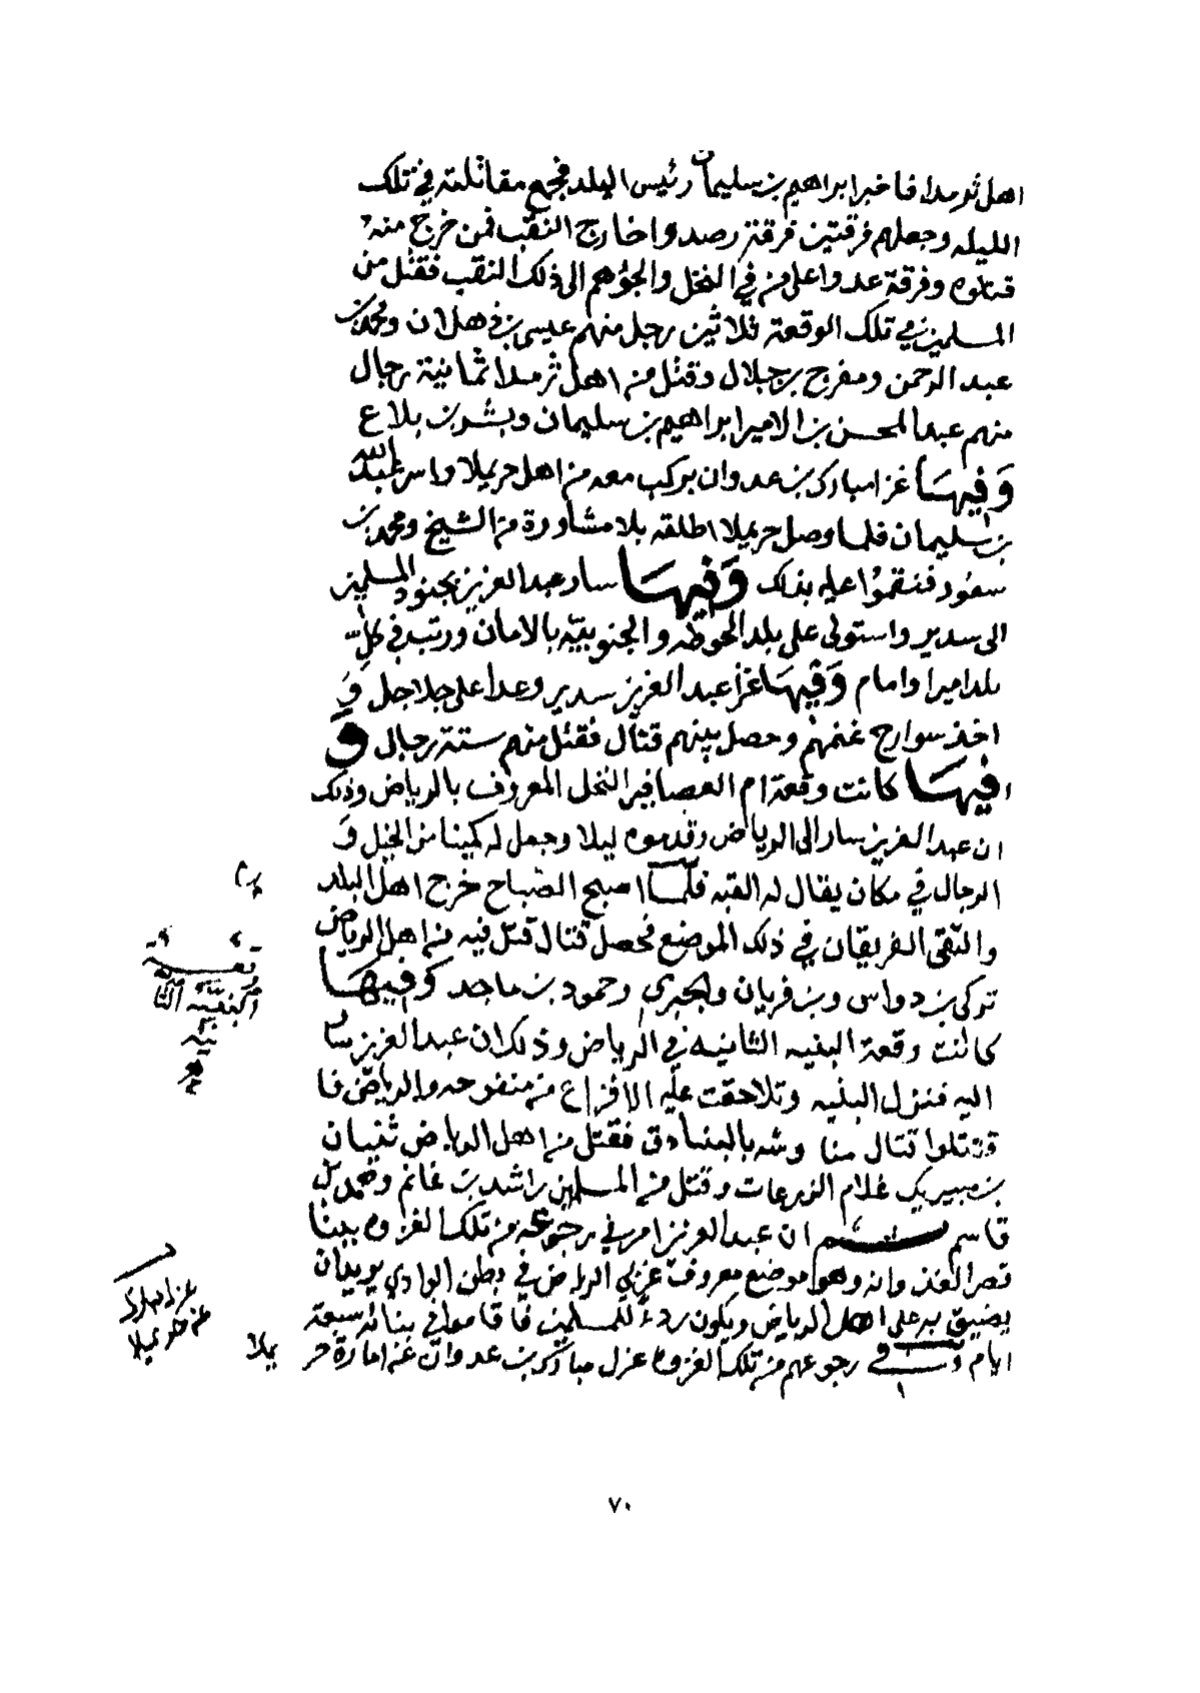 اهل ثرمدا فاخبر ابراهيم بن سليمان رئيس البلد فجمع مقاتلته في تلك
الليله وجعلهم فرقتين فرقة رصدوا خارج النقب فمن خرج منه
قتلوه وفرقة عدوا على من في النخل والجؤهم الى ذلك النقب فقتل من
المسلمين في تلك الوقعة ثلاثين رجل منهم عيسى بن ذهلان ومحمد بن
عبد الرحمن ومفرج بن جلال وقتل من اهل ثرمدا ثمانية رجال
منهم عبد المحسن بن الامير ابراهيم بن سليمان وبشر بن بلاع
وَفيهَا غزا مبارك بن عدوان بركب معه من اهل حريملا واسر عبد الله
بن سليمان فلما وصل حريملا اطلقه بلا مشاورة من الشيخ ومحمد بن
سعود فنقموا عليه بذلك وَفيهَا سار عبد العزيز بجنود المسلمين
الى سدير واستولى على بلد الحوطه والجنوبيه بالامان ورتب في كل
بلد اميرا وامام وَفيهَا غزا عبد العزيز سدير وعدا على جلاجل وَ
اخذ سوارح غنمهم وحصل بينهم قتال فقتل منهم ستة رجال وَ
فيهَا كانت وقعة ام العصافير النخل المعروف بالرياض وذلك
ان عبد العزيز سار الى الرياض وقدموه ليلا وجعل له كمينا من الخيل وَ
الرجال في مكان يقال له القبه فلما اصبح الصباح خرج اهل البلد
والتقى الفريقان في ذلك الموضع فحصل قتال قتل فيه من اهل الرياض
تركي بن دواس وبن فريان والجبري وحمود بن ماجد وَفيهَا
كانت وقعة البنيه الثانيه في الرياض وذلك ان عبد العزيز سار
اليه فنزل البنيه وتلاحقت عليه الافزاع من منفوحه والرياض فا
قتتلوا قتال مناوشه بالبنادق فقتل من اهل الرياض ثنيان
بن مبيريك غلام الزرعات وقتل من المسلمين راشد بن غانم وحمد بن
قاسم ثم ان عبد العزيز امر في رجوعه من تلك الغزوه ببنا
قصر الغذوانه وهو موضع معروف غربي الرياض في بطن الوادي يريد ان
يضيق به على اهل الرياض ويكون ردءً للمسلمين فاقاموا في بنائه سبعة
ايام وفي رجوعهم من تلك الغزوه عزل مبارك بن عدوان عن امارة حر
يملا
وقعــة
البنيه الثا
نيه
عزل مبارك
عن حريملا
٧٠